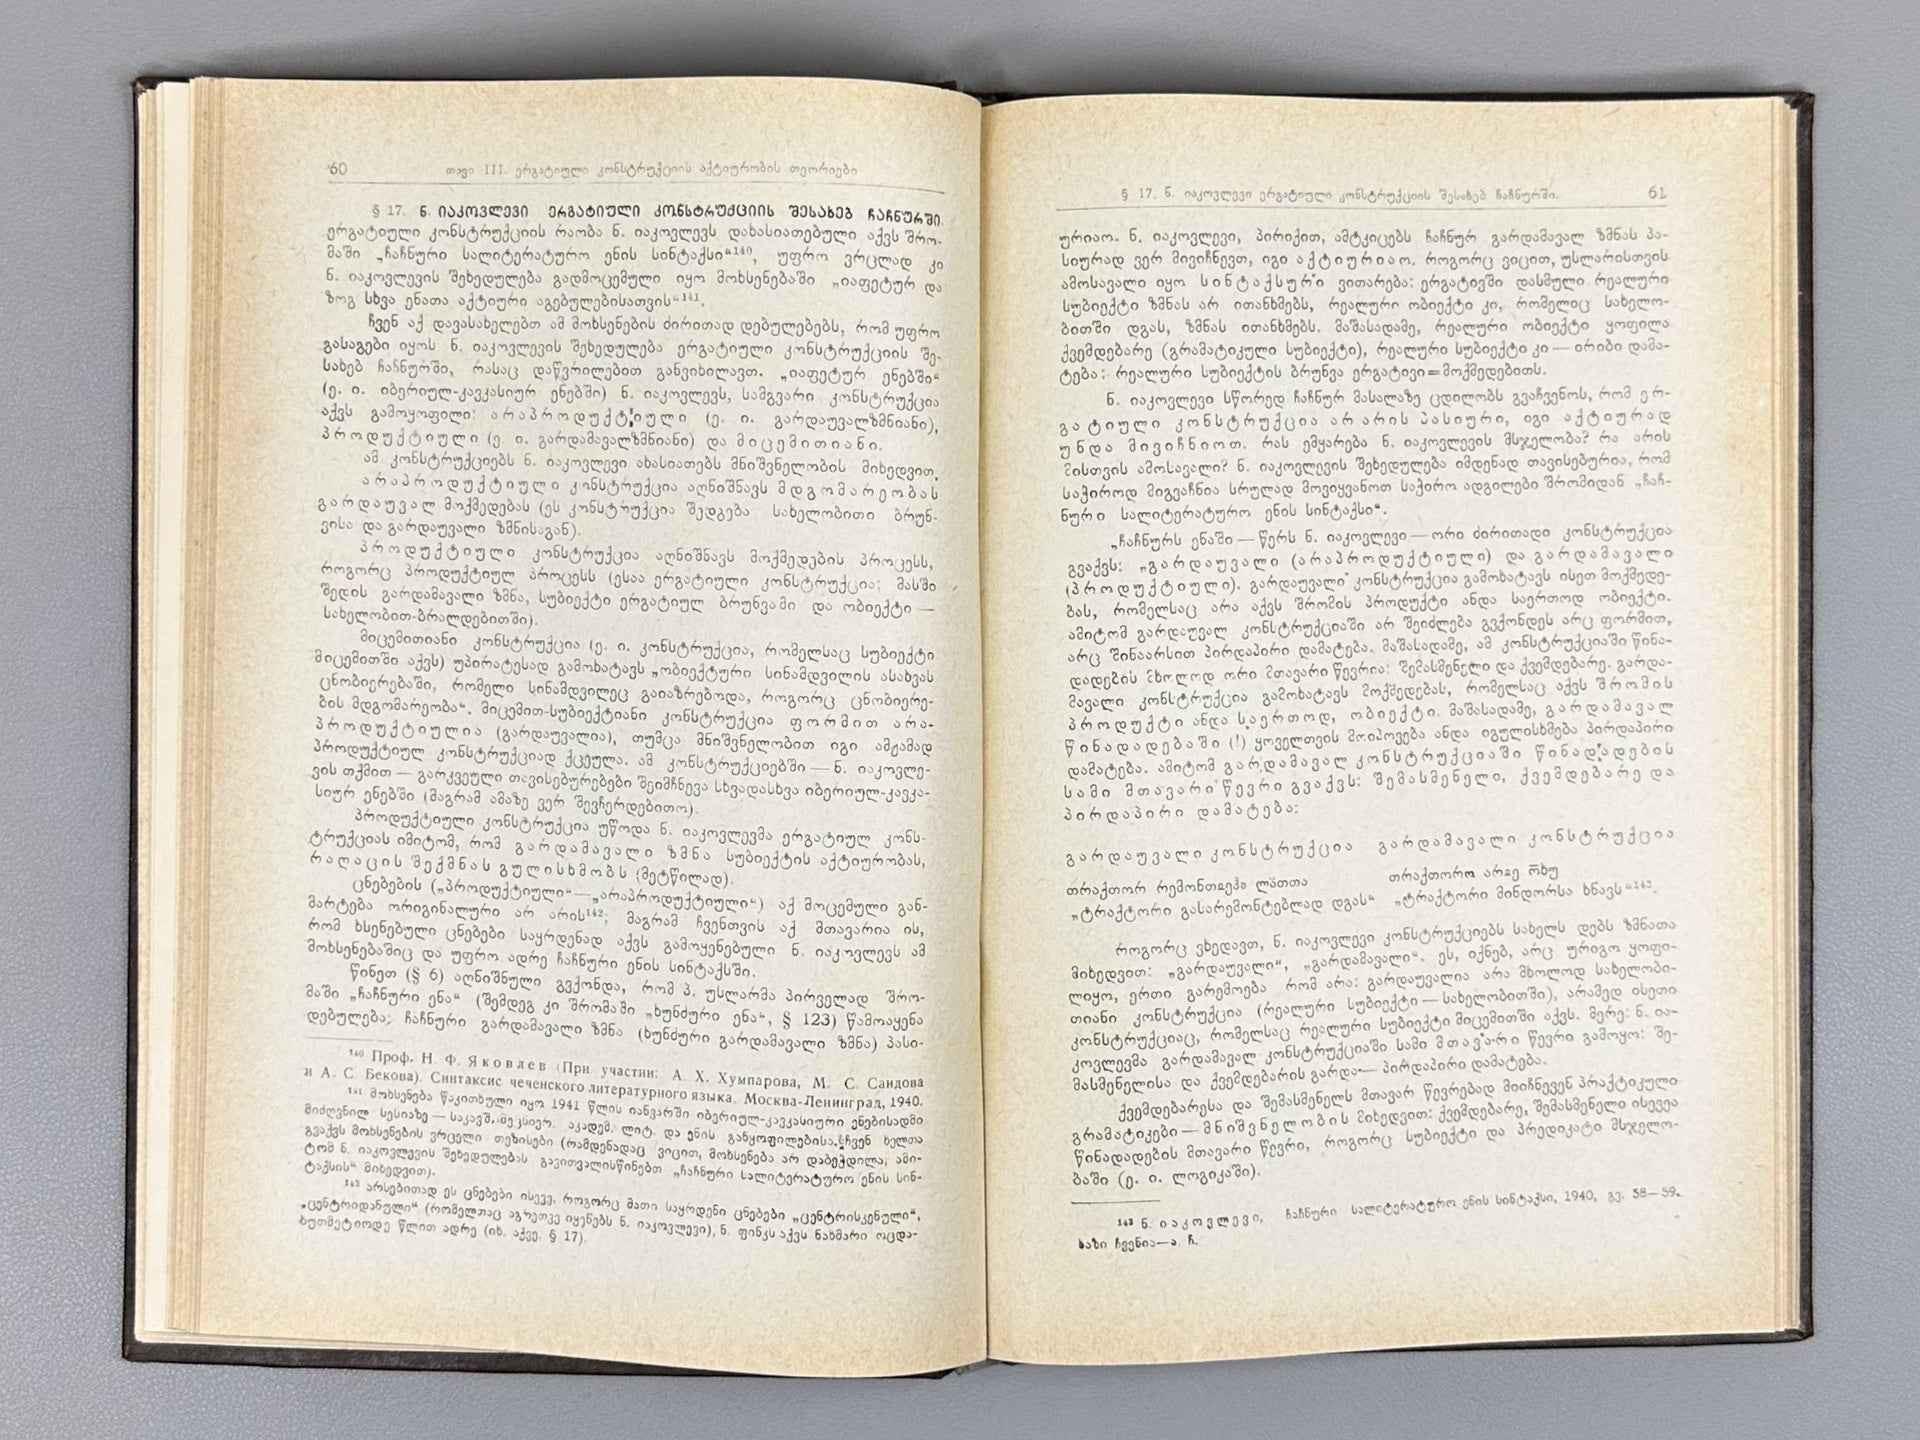 60 თავი III. ერგატიული კონსტრუქციის აქტიურობის თეორიები
§ 17. ნ. იაკოვლევი ერგატიული კონსტრუქციის შესახებ ჩაჩნურში.
ერგატიული კონსტრუქციის რაობა ნ. იაკოვლევს დახასიათებული აქვს შრო-
მაში „ჩაჩნური სალიტერატურო ენის სინტაქსი“¹⁴⁰, უფრო ვრცლად კი
ნ. იაკოვლევის შეხედულება გადმოცემული იყო მოხსენებაში „იაფეტურ და
ზოგ სხვა ენათა აქტიური აგებულებისათვის“¹⁴¹.
ჩვენ აქ დავასახელებთ ამ მოხსენების ძირითად დებულებებს, რომ უფრო
გასაგები იყოს ნ. იაკოვლევის შეხედულება ერგატიული კონსტრუქციის შე-
სახებ ჩაჩნურში, რასაც დაწვრილებით განვიხილავთ. „იაფეტურ ენებში“
(ე. ი. იბერიულ-კავკასიურ ენებში) ნ. იაკოვლევს, სამგვარი კონსტრუქცია
აქვს გამოყოფილი: არაპროდუქტიული (ე. ი. გარდაუვალზმნიანი),
პროდუქტიული (ე. ი. გარდამავალზმნიანი) და მიცემითიანი.
ამ კონსტრუქციებს ნ. იაკოვლევი ახასიათებს მნიშვნელობის მიხედვით.
არაპროდუქტიული კონსტრუქცია აღნიშნავს მდგომარეობას
გარდაუვალ მოქმედებას (ეს კონსტრუქცია შედგება სახელობითი ბრუნ-
ვისა და გარდაუვალი ზმნისაგან).
პროდუქტიული კონსტრუქცია აღნიშნავს მოქმედების პროცესს,
როგორც პროდუქტიულ პროცესს (ესაა ერგატიული კონსტრუქცია: მასში
შედის გარდამავალი ზმნა, სუბიექტი ერგატიულ ბრუნვაში და ობიექტი —
სახელობით-ბრალდებითში).
მიცემითიანი კონსტრუქცია (ე. ი. კონსტრუქცია, რომელსაც სუბიექტი
მიცემითში აქვს) უპირატესად გამოხატავს „ობიექტური სინამდვილის ასახვას
ცნობიერებაში, რომელი სინამდვილეც გაიაზრებოდა, როგორც ცნობიერე-
ბის მდგომარეობა“. მიცემით-სუბიექტიანი კონსტრუქცია ფორმით არა-
პროდუქტიულია (გარდაუვალია), თუმცა მნიშვნელობით იგი ამჟამად
პროდუქტიულ კონსტრუქციად ქცეულა. ამ კონსტრუქციებში — ნ. იაკოვლე-
ვის თქმით — გარკვეული თავისებურებები შეიმჩნევა სხვადასხვა იბერიულ-კავკა-
სიურ ენებში (მაგრამ ამაზე ვერ შევჩერდებითო).
პროდუქტიული კონსტრუქცია უწოდა ნ. იაკოვლევმა ერგატიულ კონს-
ტრუქციას იმიტომ, რომ გარდამავალი ზმნა სუბიექტის აქტიურობას,
რაღაცის შექმნას გულისხმობს (მეტწილად).
ცნებების („პროდუქტიული“ — „არაპროდუქტიული“) აქ მოცემული გან-
მარტება ორიგინალური არ არის¹⁴²; მაგრამ ჩვენთვის აქ მთავარია ის,
რომ ხსენებული ცნებები საყრდენად აქვს გამოყენებული ნ. იაკოვლევს ამ
მოხსენებაშიც და უფრო ადრე ჩაჩნური ენის სინტაქსში.
წინეთ (§ 6) აღნიშნული გვქონდა, რომ პ. უსლარმა პირველად შრო-
მაში „ჩაჩნური ენა“ (შემდეგ კი შრომაში „ხუნძური ენა“, § 123) წამოაყენა
დებულება: ჩაჩნური გარდამავალი ზმნა (ხუნძური გარდამავალი ზმნა) პასი-
¹⁴⁰ Проф. Н. Ф. Яковлев (При участии: А. Х. Хумпарова, М. С. Саидова
и А. С. Бекова). Синтаксис чеченского литературного языка. Москва-Ленинград, 1940.
¹⁴¹ მოხსენება წაკითხული იყო 1941 წლის იანვარში იბერიულ-კავკასიური ენებისადმი
მიძღვნილ სესიაზე — საკავშ. მეცნიერ. აკადემ. ლიტ. და ენის განყოფილებისა. ჩვენ ხელთა
გვაქვს მოხსენების ვრცელი თეზისები (რამდენადაც ვიცით, მოხსენება არ დაბეჭდილა; ამი-
ტომ ნ. იაკოვლევის შეხედულებას გავითვალისწინებთ „ჩაჩნური სალიტერატურო ენის სინ-
ტაქსის“ მიხედვით).
¹⁴² არსებითად ეს ცნებები ისევე, როგორც მათი საყრდენი ცნებები „ცენტრისკენული“,
„ცენტრიდანული“ (რომელთაც აგრეთვე იყენებს ნ. იაკოვლევი), ნ. ფინკს აქვს ნახმარი ოცდა-
ხუთმეტიოდე წლით ადრე (იხ. აქვე. § 17).
§ 17. ნ. იაკოვლევი ერგატიული კონსტრუქციის შესახებ ჩაჩნურში. 61
ურიაო. ნ. იაკოვლევი, პირიქით, ამტკიცებს ჩაჩნურ გარდამავალ ზმნას პა-
სიურად ვერ მივიჩნევთ, იგი აქტიურიაო. როგორც ვიცით, უსლარისთვის
ამოსავალი იყო სინტაქსური ვითარება: ერგატივში დასმული რეალური
სუბიექტი ზმნას არ ითანხმებს, რეალური ობიექტი კი, რომელიც სახელო-
ბითში დგას, ზმნას ითანხმებს. მაშასადამე, რეალური ობიექტი ყოფილა
ქვემდებარე (გრამატიკული სუბიექტი), რეალური სუბიექტი კი — ირიბი დამა-
ტება: რეალური სუბიექტის ბრუნვა ერგატივი=მოქმედებითს.
ნ. იაკოვლევი სწორედ ჩაჩნურ მასალაზე ცდილობს გვაჩვენოს, რომ ერ-
გატიული კონსტრუქცია არ არის პასიური, იგი აქტიურად
უნდა მივიჩნიოთ. რას ემყარება ნ. იაკოვლევის მსჯელობა? რა არის
მისთვის ამოსავალი? ნ. იაკოვლევის შეხედულება იმდენად თავისებურია, რომ
საჭიროდ მიგვაჩნია სრულად მოვიყვანოთ საჭირო ადგილები შრომიდან „ჩაჩ-
ნური სალიტერატურო ენის სინტაქსი“.
„ჩაჩნურს ენაში — წერს ნ. იაკოვლევი — ორი ძირითადი კონსტრუქცია
გვაქვს: „გარდაუვალი (არაპროდუქტიული) და გარდამავალი
(პროდუქტიული). გარდაუვალი კონსტრუქცია გამოხატავს ისეთ მოქმედე-
ბას, რომელსაც არა აქვს შრომის პროდუქტი ანდა საერთოდ ობიექტი.
ამიტომ გარდაუვალ კონსტრუქციაში არ შეიძლება გვქონდეს არც ფორმით,
არც შინაარსით პირდაპირი დამატება. მაშასადამე, ამ კონსტრუქციაში წინა-
დადების მხოლოდ ორი მთავარი წევრია: შემასმენელი და ქვემდებარე. გარდა-
მავალი კონსტრუქცია გამოხატავს მოქმედებას, რომელსაც აქვს შრომის
პროდუქტი ანდა საერთოდ, ობიექტი. მაშასადამე, გარდამავალ
წინადადებაში (!) ყოველთვის მოიპოვება ანდა იგულისხმება პირდაპირი
დამატება. ამიტომ გარდამავალ კონსტრუქციაში წინადადების
სამი მთავარი წევრი გვაქვს: შემასმენელი, ქვემდებარე და
პირდაპირი დამატება:
გარდაუვალი კონსტრუქცია გარდამავალი კონსტრუქცია
თრაქთორ რემონთ ლათთა თრაქთორო
„ტრაქტორი გასარემონტებლად დგას“ „ტრაქტორი მინდორსა ხნავს“¹⁴³.
როგორც ვხედავთ, ნ. იაკოვლევი კონსტრუქციებს სახელს დებს ზმნათა
მიხედვით: „გარდაუვალი“, „გარდამავალი“. ეს, იქნებ, არც ურიგო ყოფი-
ლიყო, ერთი გარემოება რომ არა: გარდაუვალია არა მხოლოდ სახელობი-
თიანი კონსტრუქცია (რეალური სუბიექტი — სახელობითში), არამედ ისეთი
კონსტრუქციაც, რომელსაც რეალური სუბიექტი მიცემითში აქვს. მერე: ნ. ია-
კოვლევმა გარდამავალ კონსტრუქციაში სამი მთავარი წევრი გამოყო: შე-
მასმენელისა და ქვემდებარის გარდა — პირდაპირი დამატება.
ქვემდებარესა და შემასმენელს მთავარ წევრებად მიიჩნევენ პრაქტიკული
გრამატიკები — მნიშვნელობის მიხედვით: ქვემდებარე, შემასმენელი ისევეა
წინადადების მთავარი წევრი, როგორც სუბიექტი და პრედიკატი მსჯელო-
ბაში (ე. ი. ლოგიკაში).
¹⁴³ ნ. იაკოვლევი, ჩაჩნური სალიტერატურო ენის სინტაქსი, 1940, გვ. 58—59.
ხაზი ჩვენია—ა. ჩ.